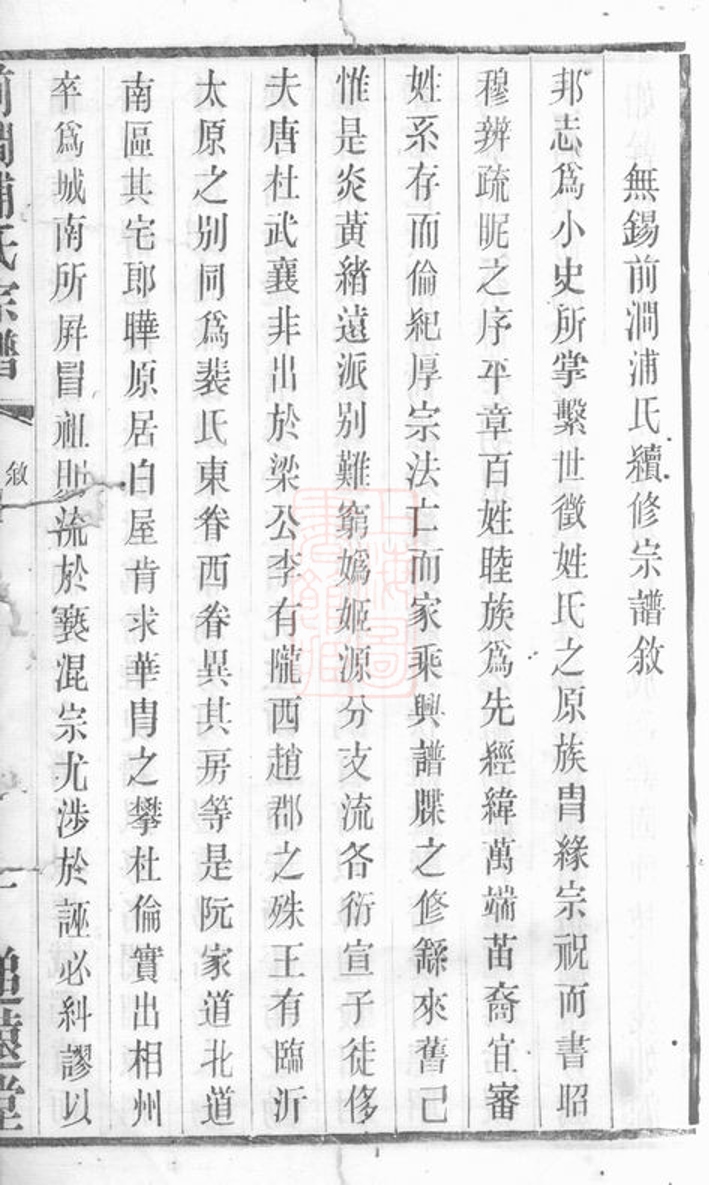 無錫前澗浦氏續修宗譜敘
邦志爲小史所掌繫世徵姓氏之原族冑緣宗祝而書昭
穆辨疏昵之序平章百姓睦族爲先經緯萬端苗裔宜審
姓系存而倫紀厚宗法亡而家乘興譜牒之修繇來舊已
惟是炎黃緒遠派别難窮嬀姬源分支流各衍宣子徒侈
夫唐杜武襄非出於梁公李有隴西趙郡之殊王有臨沂
太原之别同爲裴氏東眷西眷異其房等是阮家道北道
南區其宅郎曄原居白屋肯求華冑之攀杜倫實出相州
卒爲城南所屏冒祖則流於褻混宗尤涉於誣必糾謬以
前澗浦氏宗譜
敘
一
追遠堂